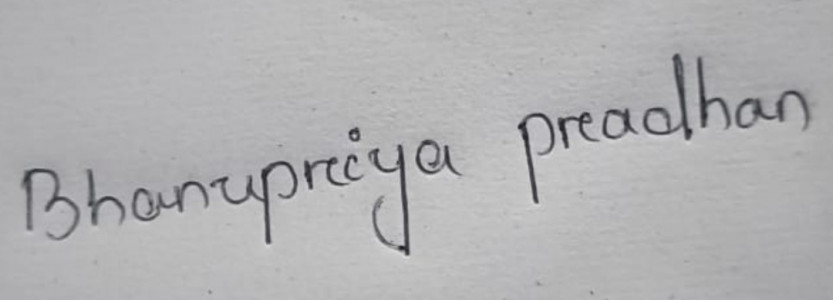 Bhanupreiya preadhan